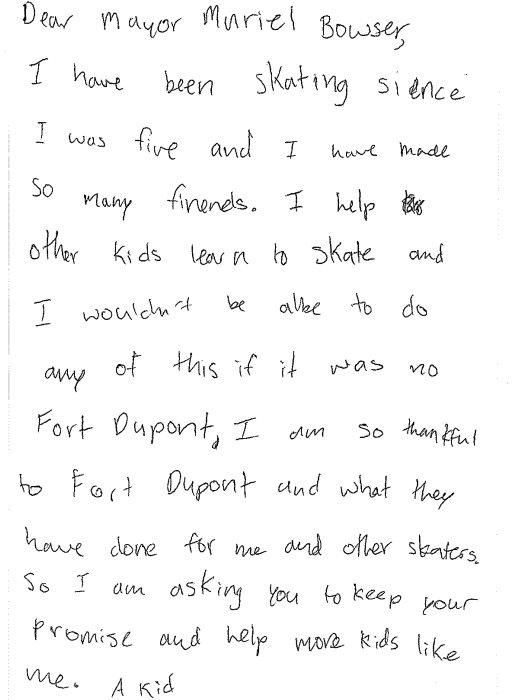 Dear Mayor Muriel Bowser,
I have been skating sience
I was five and I have made
so many finends. I help
other kids learn to skate and
I wouldn't be albe to do
any of this if it was no
Fort Dupont, I am so thankful
to Fort Dupont and what they
have done for me and other skaters.
So I am asking you to keep your
promise and help more kids like
me. A kid